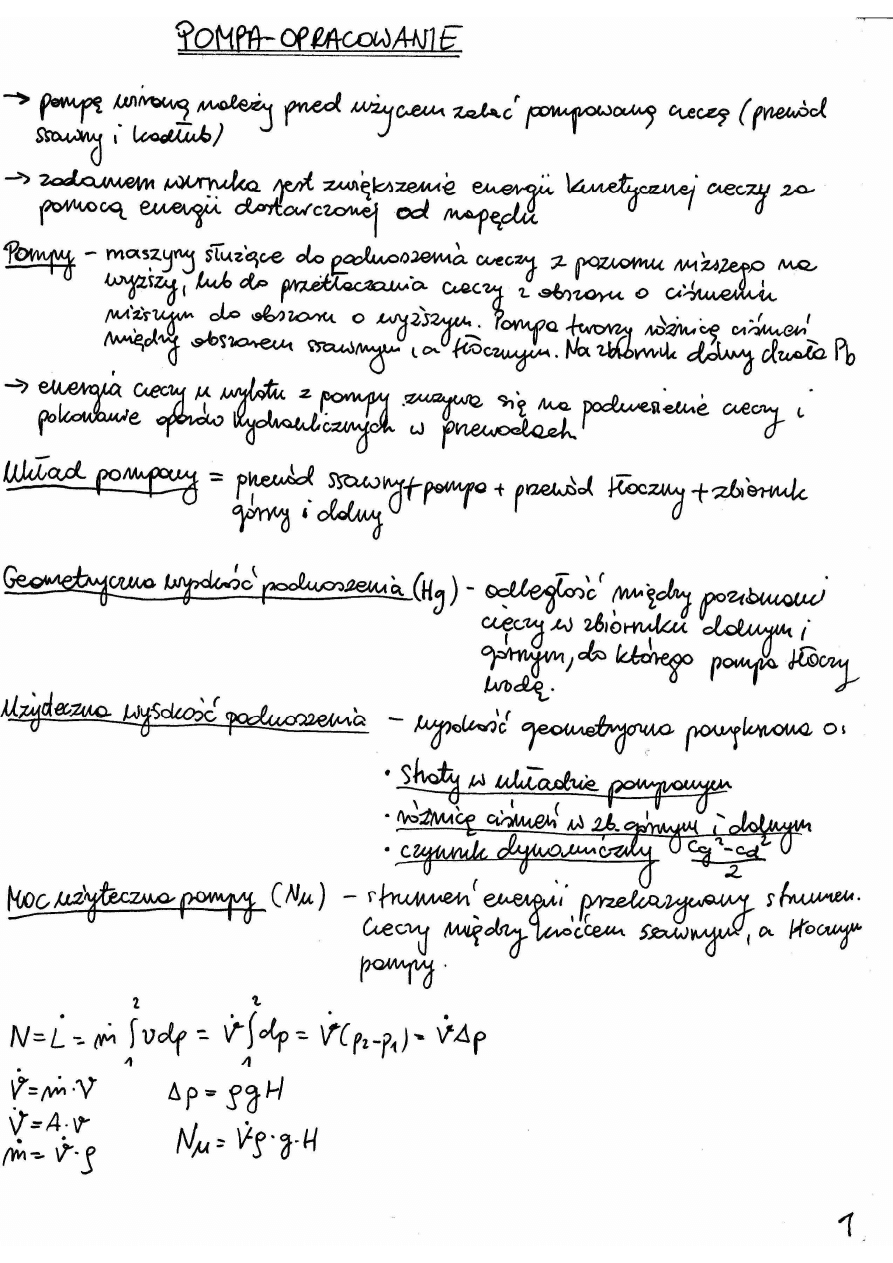 POMPA-OPRACOWANIE
→ pompę wirową należy przed użyciem zalać pompowaną cieczą (przewód
ssawny i kadłub)
→ zadaniem wirnika jest zwiększenie energii kinetycznej cieczy za
pomocą energii dostarczonej od napędu
Pompy – maszyny służące do podnoszenia cieczy z poziomu niższego na
wyższy, lub do przetłaczania cieczy z obszaru o ciśnieniu
niższym do obszaru o wyższym. Pompa tworzy różnicę ciśnień
między obszarem ssawnym, a tłocznym. Na zbiornik dolny działa Pb
→ energia cieczy u wylotu z pompy zużywa się na podniesienie cieczy i
pokonanie oporów hydraulicznych w przewodach
Układ pompowy = przewód ssawny + pompa + przewód tłoczny + zbiornik
górny i dolny
Geometryczna wysokość podnoszenia (Hg) – odległość między poziomami
cieczy w zbiorniku dolnym i
górnym, do którego pompa tłoczy
wodę.
Użyteczna wysokość podnoszenia – wysokość geometryczna powiększona o:
• straty w układzie pompowym
• różnicę ciśnień w zb. górnym i dolnym
• czynnik dynamiczny (cg²-cd²)/2
Moc użyteczna pompy (Nu) – strumień energii przekazywany strumien.
cieczy między króćcem ssawnym, a tłocznym
pompy.
N = L̇ = ṁ ∫₁² v dp = V̇ ∫₁² dp = V̇(p₂-p₁) = V̇Δp
V̇ = ṁ·V Δp = ρgH
V̇ = A·v
ṁ = V̇·ρ Nu = V̇ρ·g·H
1